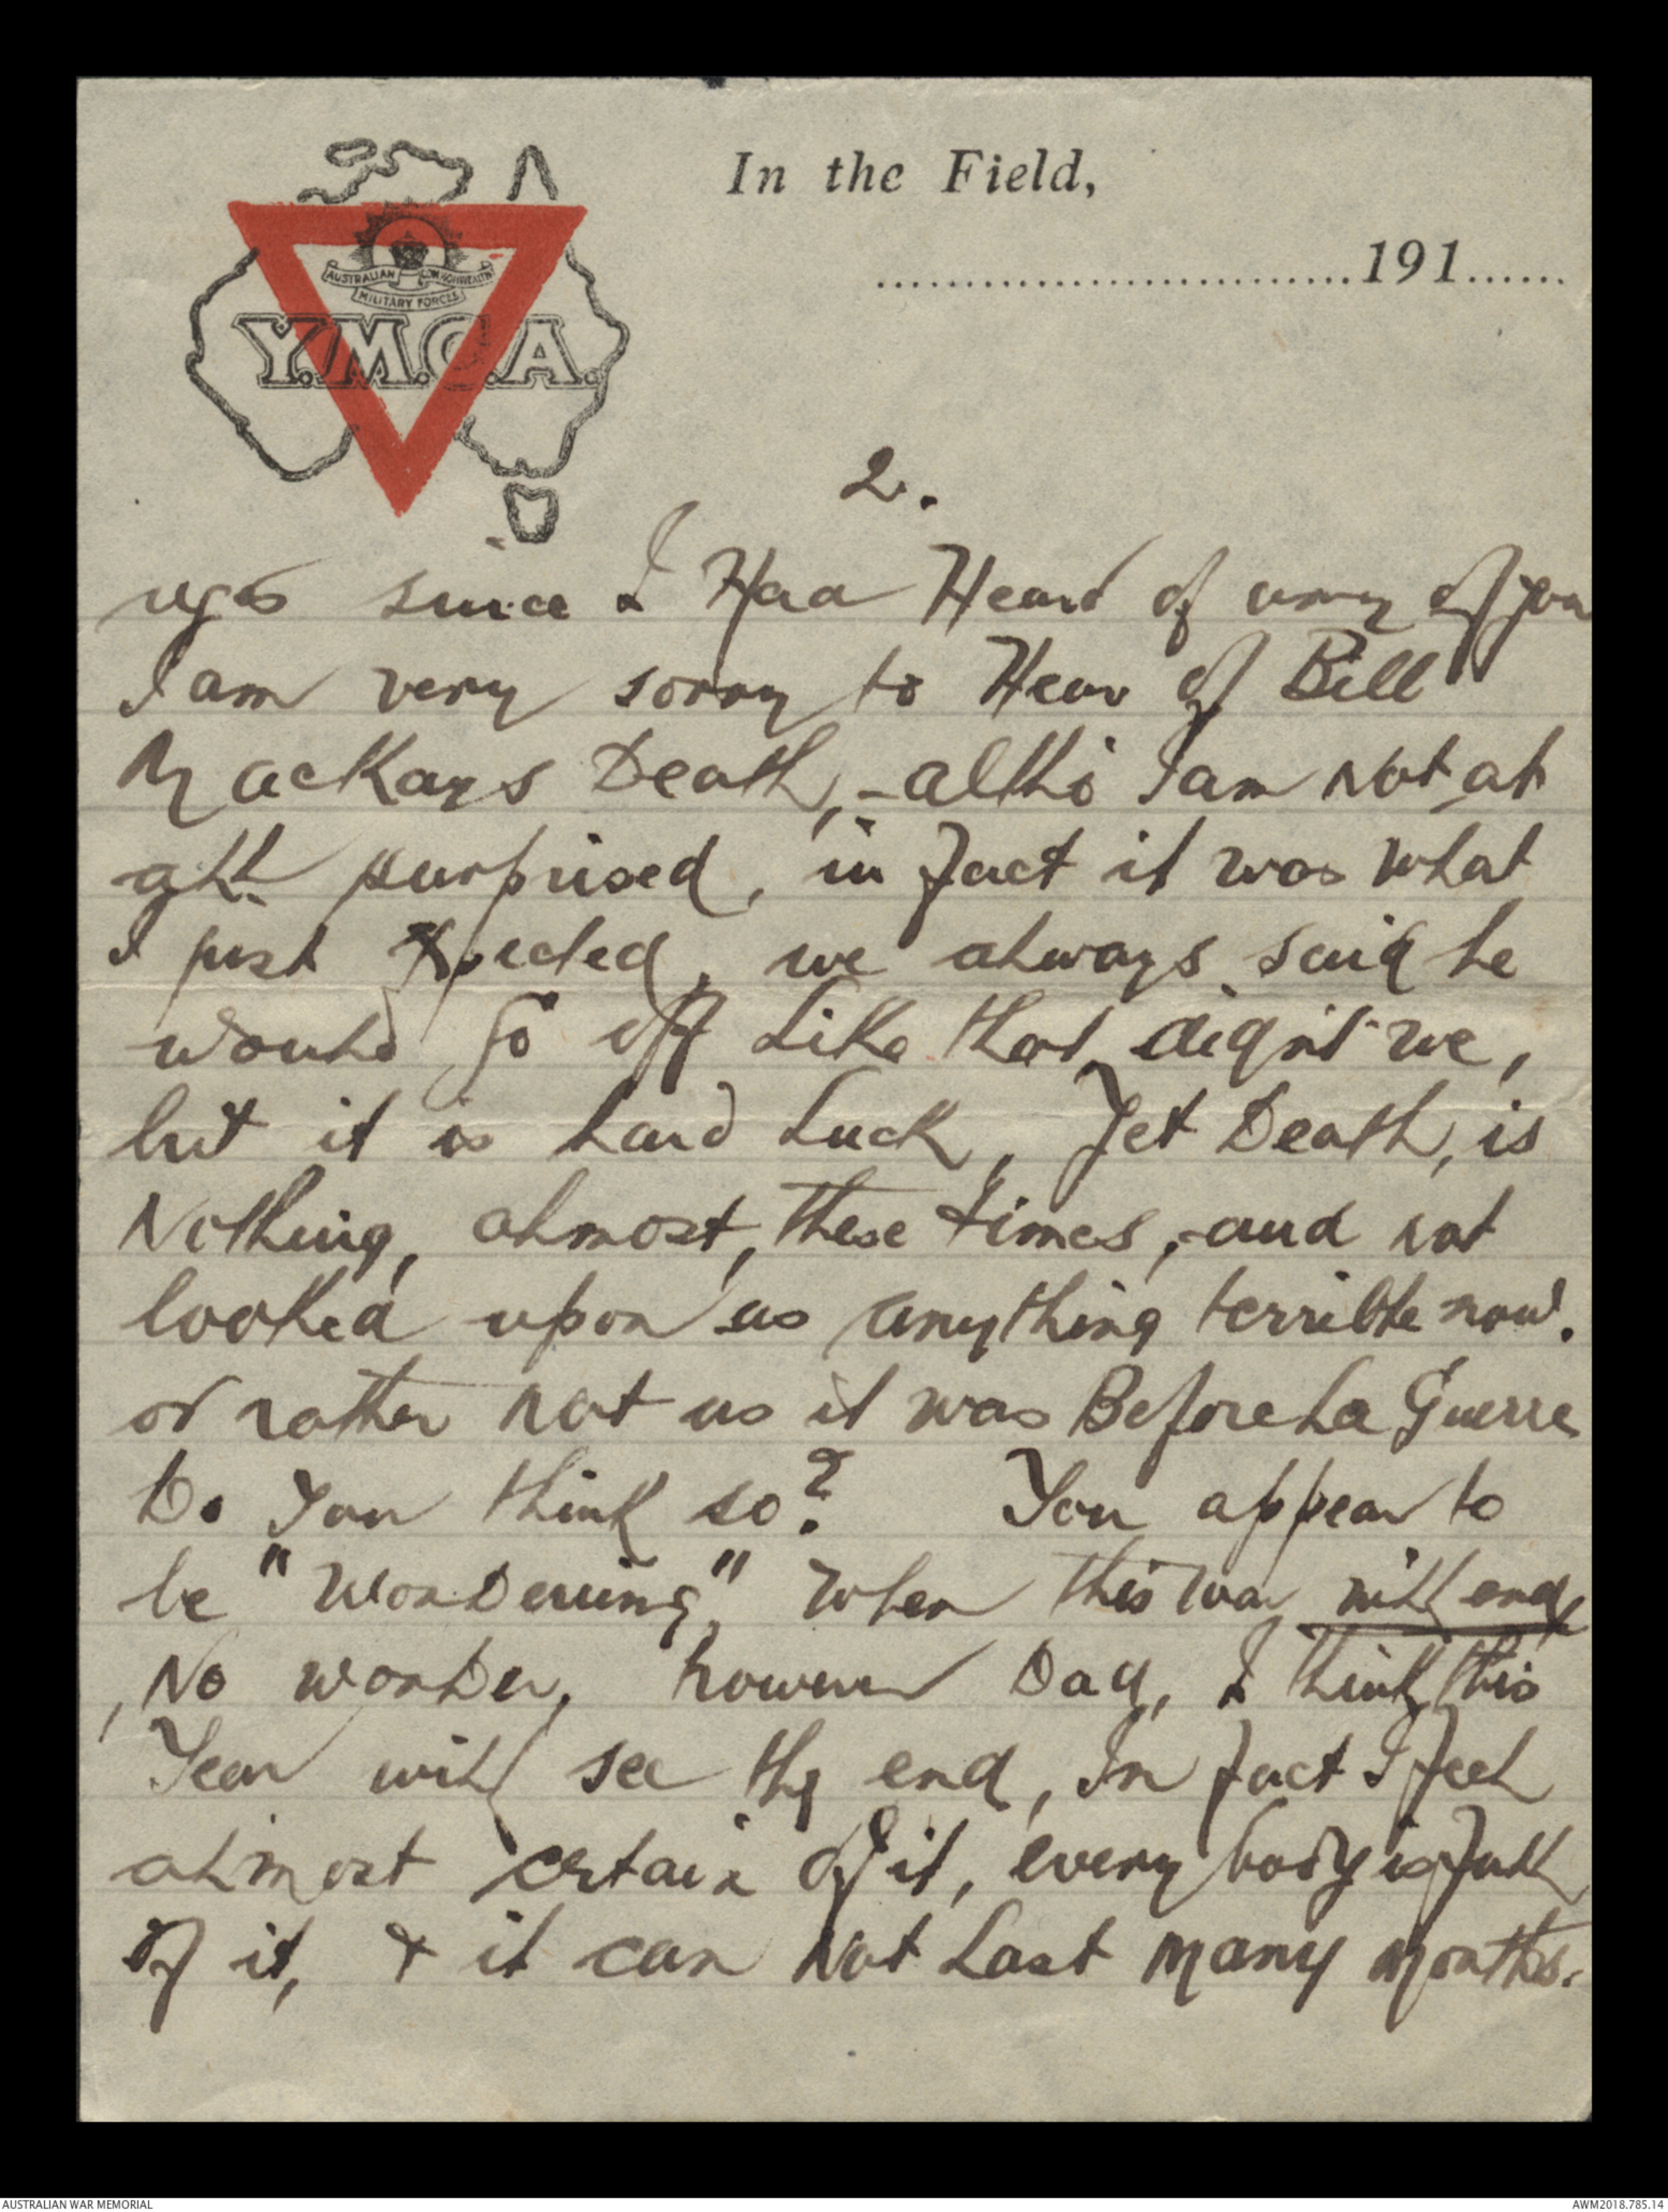 In the Field,
..............................191......
AUSTRALIAN COMMONWEALTH
MILITARY FORCES
Y.M.C.A.
2.
ages since I Had Heard of any of you
I am very sorry to Hear of Bill
Mackays Death, - altho I am Not at
all surprised, in fact it was what
I just Xpected, we always said he
would Go off Like that, didn't we,
but it is hard Luck, Yet Death, is
Nothing, almost, these times, - and not
looked upon as anything terrible now.
or rather Not as it was Before La Guerre
Do You think so? You appear to
be "Wondering", when this war will end,
No wonder, however Dad, I think this
Year will see the end, In fact I feel
almost certain of it, every body is full
of it, & it can Not Last Many Months.
AUSTRALIAN WAR MEMORIAL
AWM2018.785.14